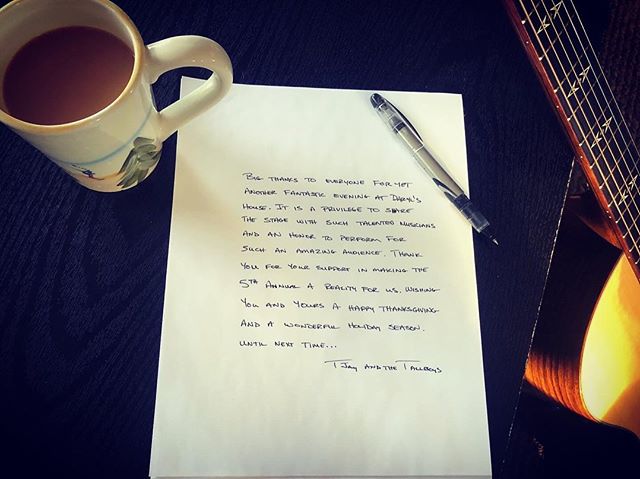 BIG THANKS TO EVERYONE FOR YET
ANOTHER FANTASTIC EVENING AT DARYL'S
HOUSE. IT IS A PRIVILEGE TO SHARE
THE STAGE WITH SUCH TALENTED MUSICIANS
AND AN HONOR TO PERFORM FOR
SUCH AN AMAZING AUDIENCE. THANK
YOU FOR YOUR SUPPORT IN MAKING THE
5TH ANNUAL A REALITY FOR US. WISHING
YOU AND YOURS A HAPPY THANKSGIVING
AND A WONDERFUL HOLIDAY SEASON.
UNTIL NEXT TIME...
T JAY AND THE TALLBOYS